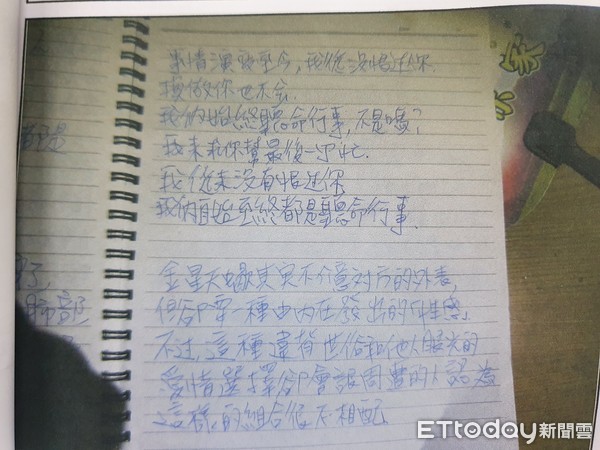 事情演變至今,我從沒恨过你.
換做你也不会.
我們始終聽命行事,不是嗎?
我来和你幫最後一次忙.
我從来没有恨过你
我們自始至終都是聽命行事.
金星天蠍其實不介意對方的外表,
但卻要一種由内在發出的性感.
不过,這種違背世俗和他人眼光的
愛情選擇,卻會讓周遭的人認為
這樣的組合很不相配.
肺部
ETtoday新聞雲